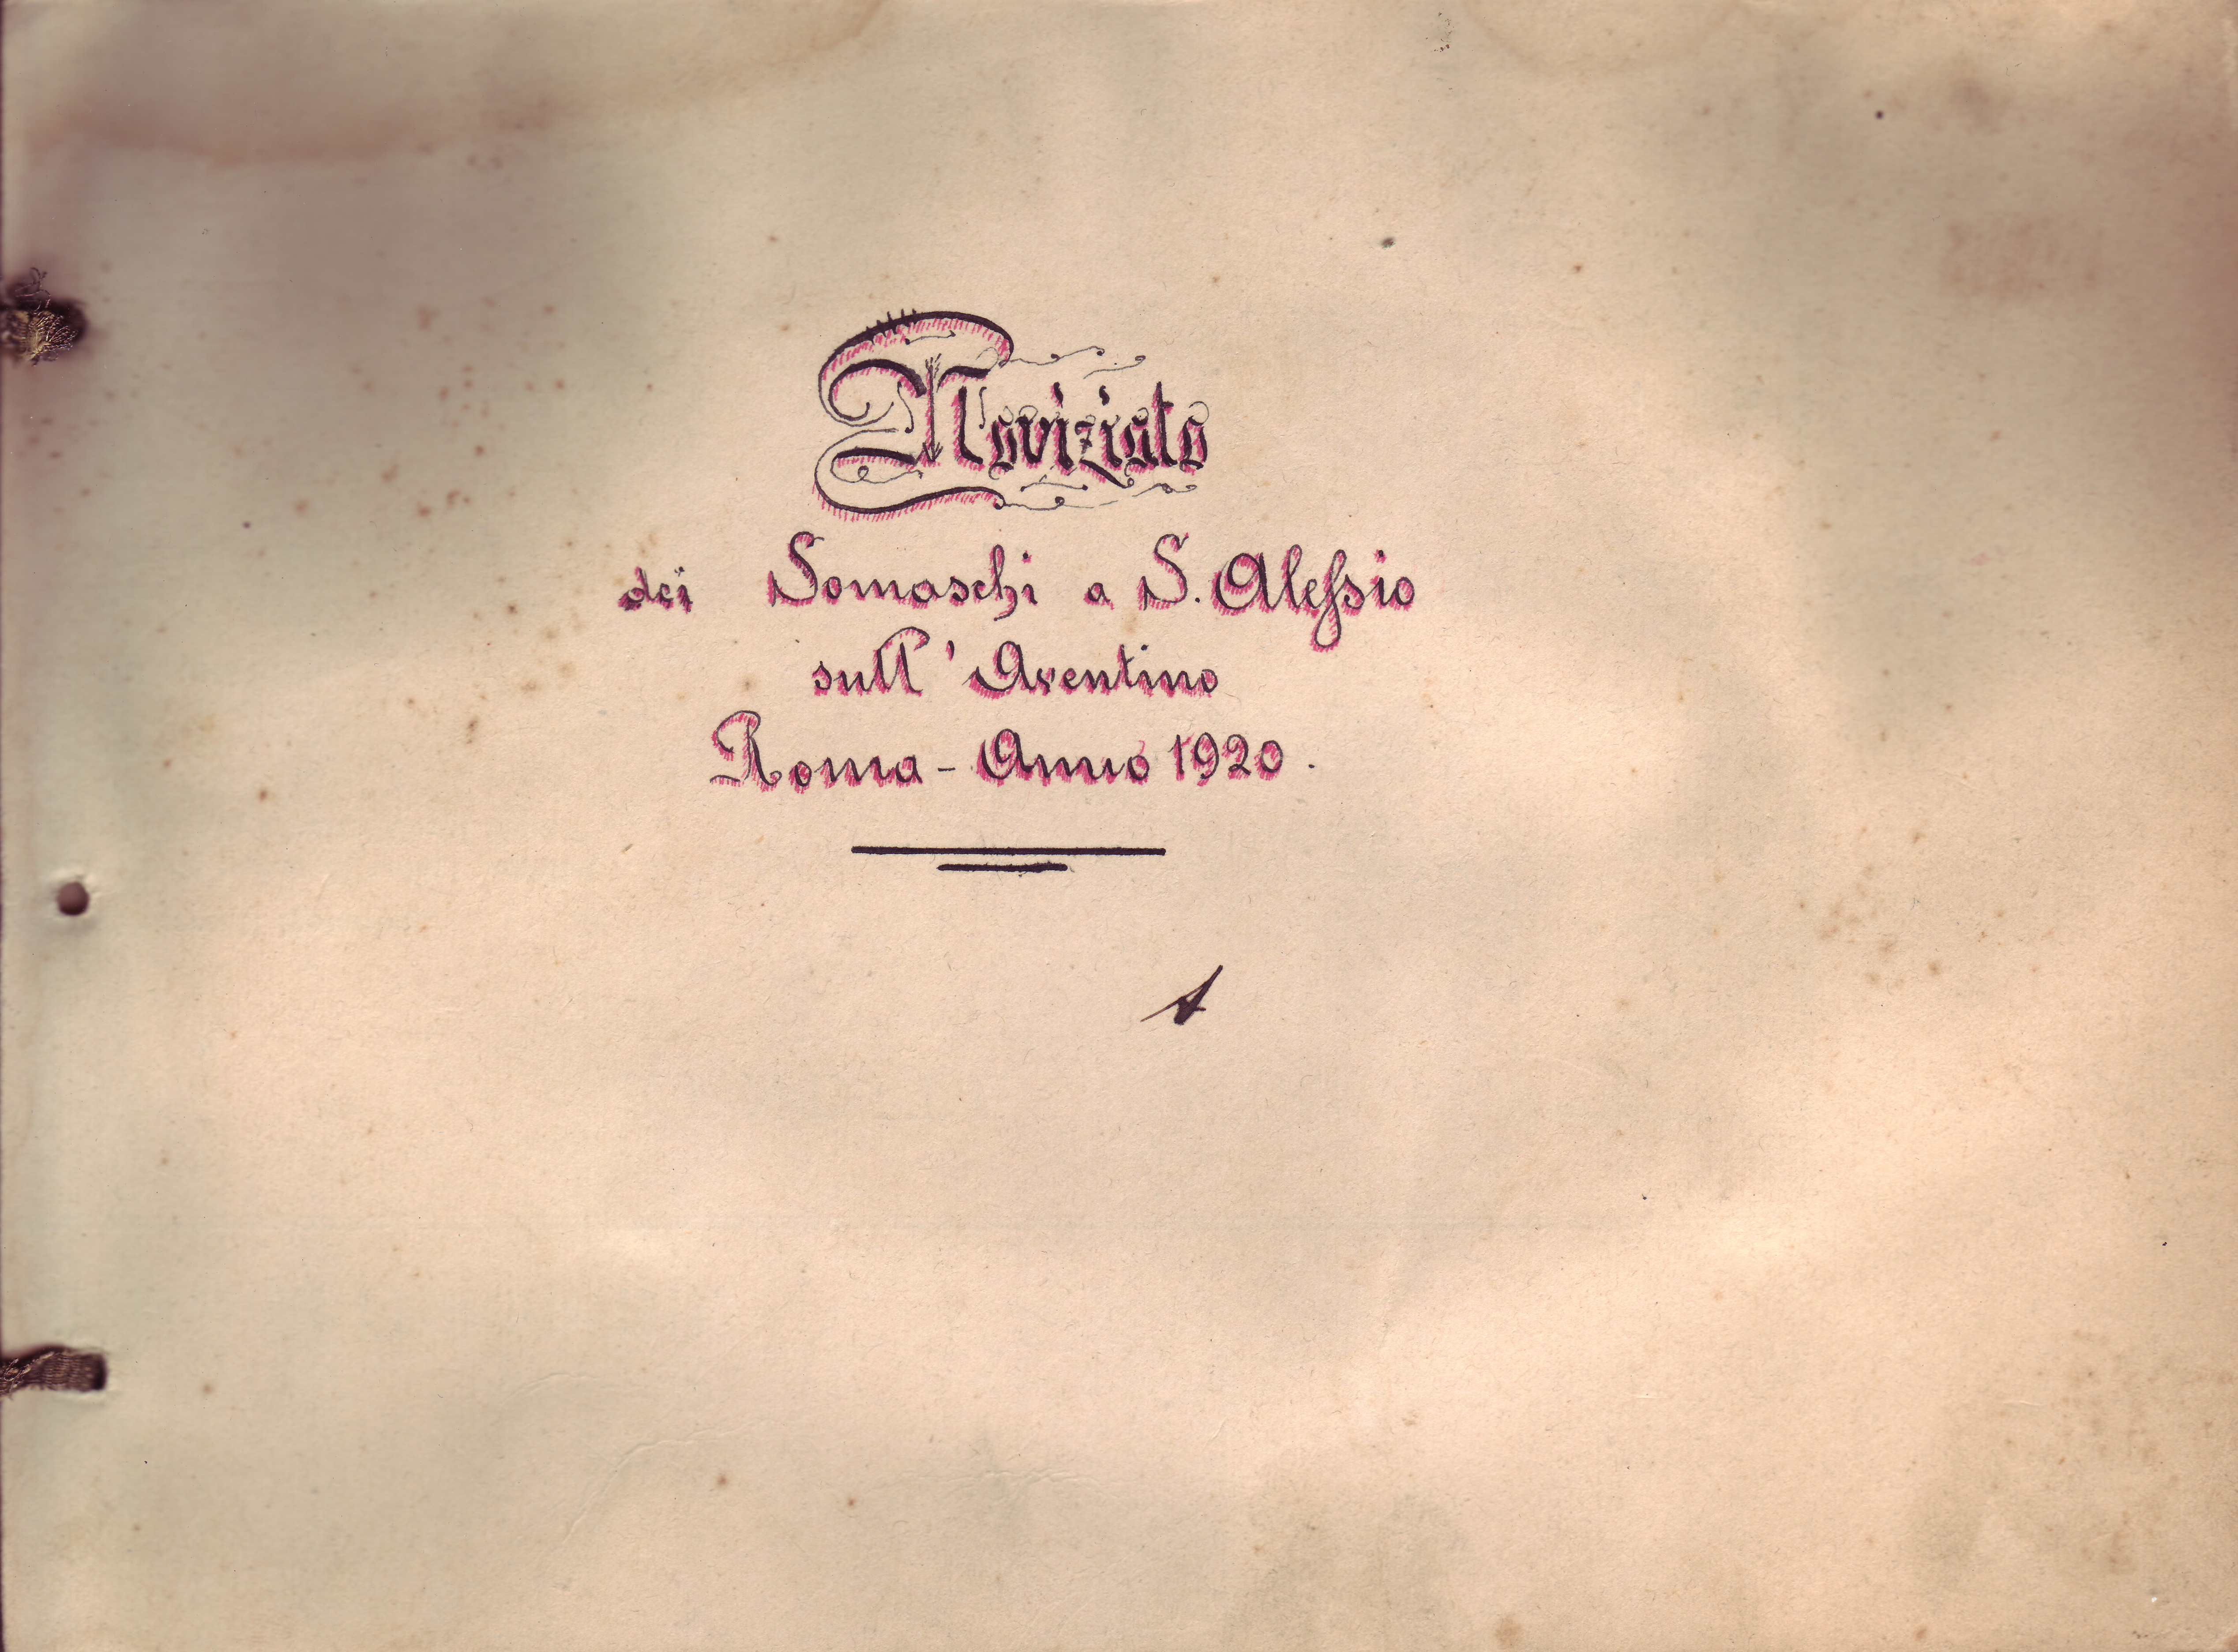 Noviziato
dei Somaschi a S. Alessio
sull' Aventino
Roma - Anno 1920.